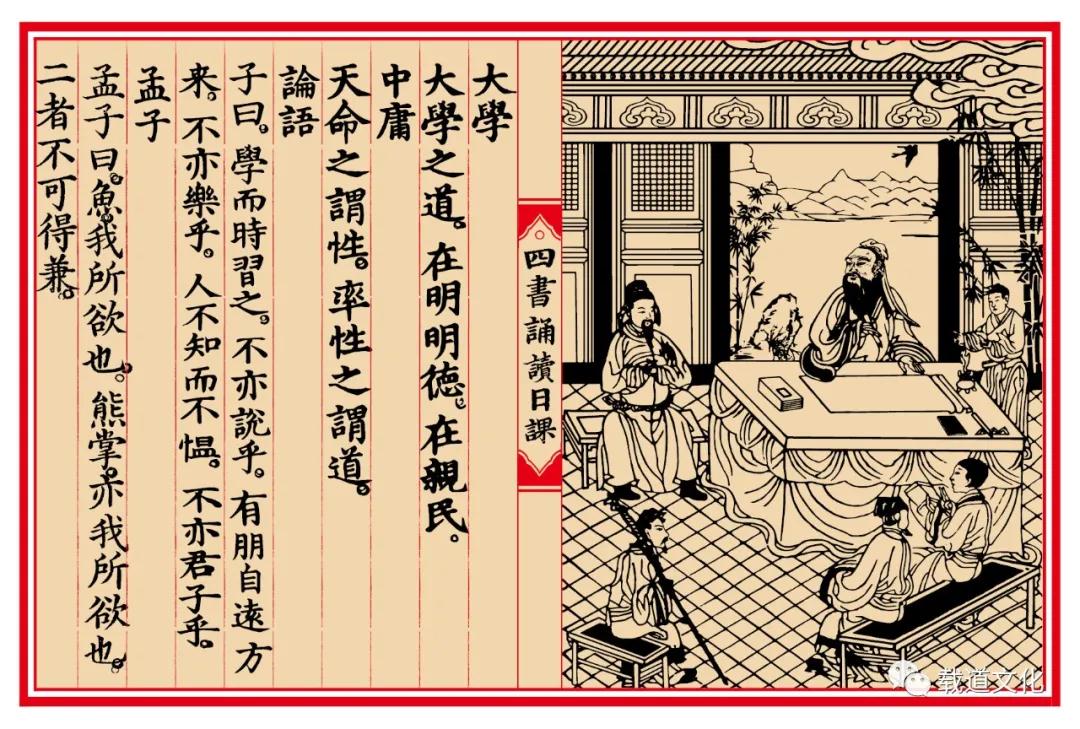 四書誦讀日課
大學
大學之道。在明明德。在親民。
中庸
天命之謂性。率性之謂道。
論語
子曰。學而時習之。不亦說乎。有朋自遠方
来。不亦樂乎。人不知而不愠。不亦君子乎。
孟子
孟子曰。魚。我所欲也。熊掌。亦我所欲也。
二者不可得兼。
载道文化